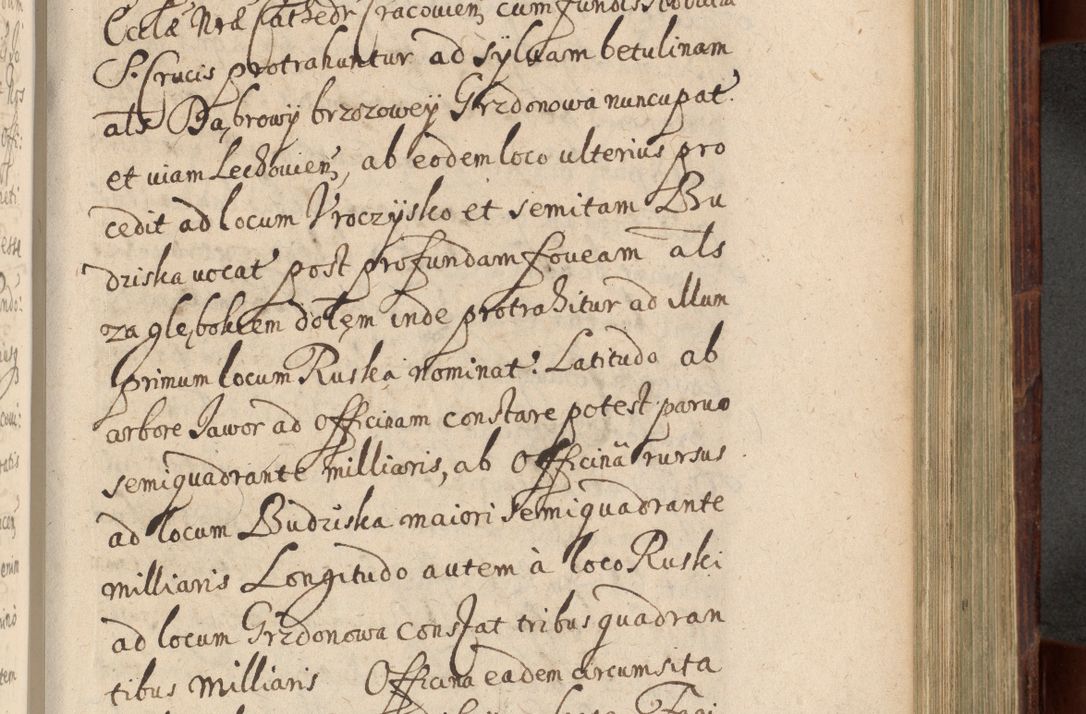 Ecclæ Nræ Cathedr Cracovien cum fundis
S. Crucis protrahuntur ad sylvam betulinam
als Dąbrowÿ brzozoweÿ Grzdonowa nuncupat:
et viam Lechovien, ab eodem loco ulterius pro
cedit ad locum Vroczÿsko et semitam Bu
dziska vocat post profundam foveam als
za głębokiem dołęm inde protrahitur ad illum
primum locum Ruska nominat: Latitudo ab
arbore Jawor ad Officinam constare potest parvo
semiquadrante milliaris, ab Officinâ rursus
ad locum Budziska maiori semiquadrante
milliaris Longitudo autem à loco Ruski
ad locum Grzdonowa constat tribus quadran
tibus milliaris Officina eadem circumsita